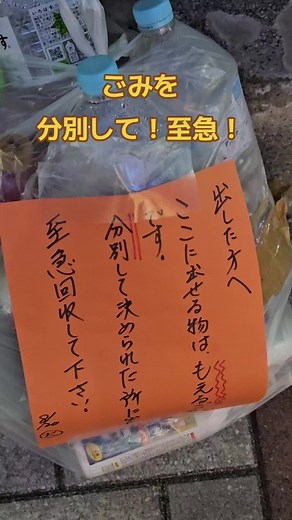 ごみを
分別して！至急！
出した方へ
ここに出せる物は、もえる
です。
分別して決められた所に
至急回収して下さい！